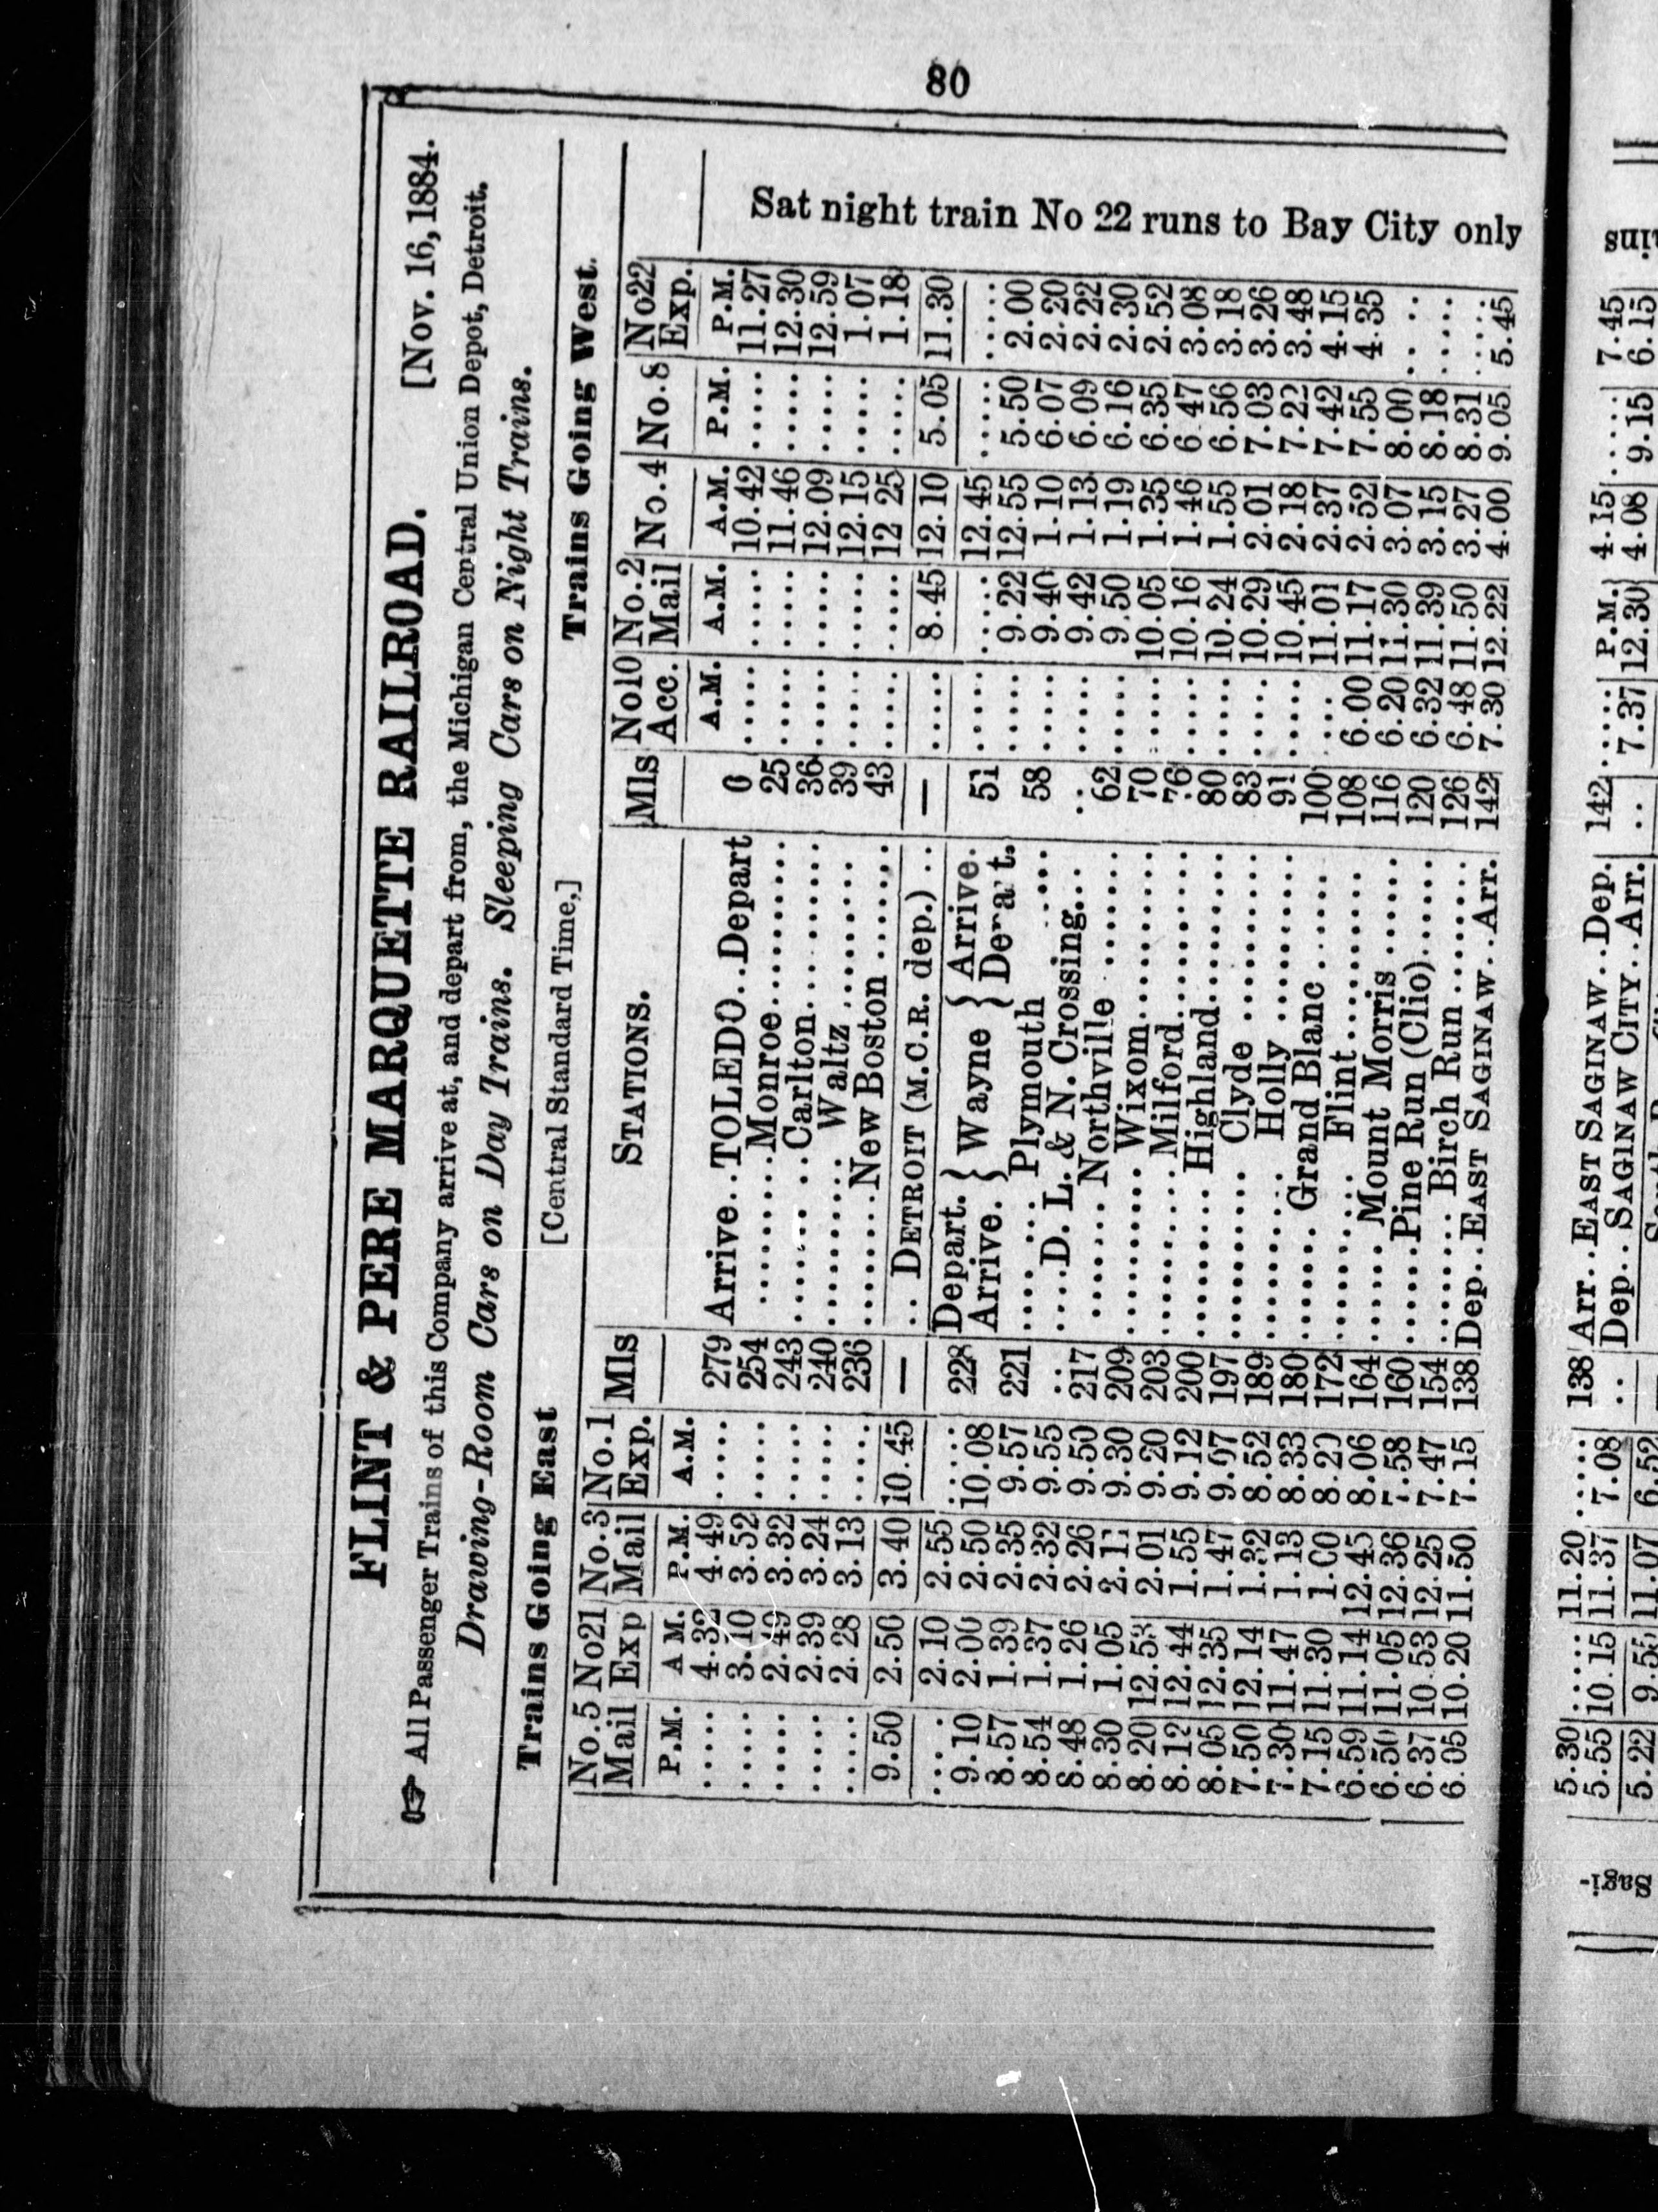 80
FLINT & PERE MARQUETTE RAILROAD. [Nov. 16, 1884.
☞ All Passenger Trains of this Company arrive at, and depart from, the Michigan Central Union Depot, Detroit.
Drawing-Room Cars on Day Trains. Sleeping Cars on Night Trains.
Trains Going East [Central Standard Time,] Trains Going West.
No.5 Mail No21 Exp No.3 Mail No.1 Exp. Mls STATIONS. Mls No10 Acc. No.2 Mail No.4 No.8 No22 Exp.
P.M. A M. P.M. A.M. A.M. A.M. A.M. P.M. P.M.
..... 4.32 4.49 ..... 279 Arrive..TOLEDO..Depart 0 ..... ..... 10.42 ..... 11.27
..... 3.10 3.52 ..... 254 ........Monroe........ 25 ..... ..... 11.46 ..... 12.30
..... 2.49 3.32 ..... 243 ........Carlton........ 36 ..... ..... 12.09 ..... 12.59
..... 2.39 3.24 ..... 240 ........Waltz........ 39 ..... ..... 12.15 ..... 1.07
..... 2.28 3.13 ..... 236 ........New Boston........ 43 ..... ..... 12 25 ..... 1.18
9.50 2.50 3.40 10.45 — ..DETROIT (M.C.R. dep.).. — ..... 8.45 12.10 5.05 11.30
..... 2.10 2.55 ..... 228 Depart. } Wayne { Arrive. 51 ..... ..... 12.45 ..... .....
9.10 2.00 2.50 10.08 Arrive. } { ..... 9.22 12.55 5.50 2.00
8.57 1.39 2.35 9.57 221 ........Plymouth........ 58 ..... 9.40 1.10 6.07 2.20
8.54 1.37 2.32 9.55 .. ....D. L. & N. Crossing... .. ..... 9.42 1.13 6.09 2.22
8.48 1.26 2.26 9.50 217 ........Northville........ 62 ..... 9.50 1.19 6.16 2.30
8.30 1.05 2.11 9.30 209 ........Wixom........ 70 ..... 10.05 1.35 6.35 2.52
8.20 12.53 2.01 9.20 203 ........Milford........ 76 ..... 10.16 1.46 6 47 3.08
8.12 12.44 1.55 9.12 200 ........Highland........ 80 ..... 10.24 1.55 6.56 3.18
8.05 12.35 1.47 9.07 197 ........Clyde........ 83 ..... 10.29 2.01 7.03 3.26
7.50 12.14 1.32 8.52 189 ........Holly........ 91 ..... 10.45 2.18 7.22 3.48
7.30 11.47 1.13 8.33 180 ........Grand Blanc........ 100 ..... 11.01 2.37 7.42 4.15
7.15 11.30 1.00 8.20 172 ........Flint........ 108 6.00 11.17 2.52 7.55 4.35
6.59 11.14 12.45 8.06 164 ......Mount Morris...... 116 6.20 11.30 3.07 8.00 ....
6.50 11.05 12.36 7.58 160 ......Pine Run (Clio)...... 120 6.32 11.39 3.15 8.18 ....
6.37 10.53 12.25 7.47 154 ........Birch Run........ 126 6.48 11.50 3.27 8.31 ....
6.05 10.20 11.50 7.15 138 Dep..EAST SAGINAW..Arr. 142 7.30 12.22 4.00 9.05 5.45
Sat night train No 22 runs to Bay City only
5.30 ..... 11.20 ..... 138 Arr..EAST SAGINAW..Dep. 142 ..... P.M. 4.15 ..... 7.45
5.55 10.15 11.37 7.08 .. Dep..SAGINAW CITY..Arr. .. 7.37 12.30 4.08 9.15 6.15
5.22 9.55 11.07 6.52
Sagi-